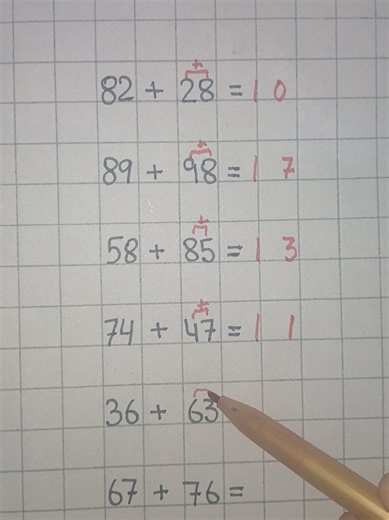 82 + 28 = 1 0
89 + 98 = 1 7
58 + 85 = 1 3
74 + 47 = 1 1
36 + 63
67 + 76 =